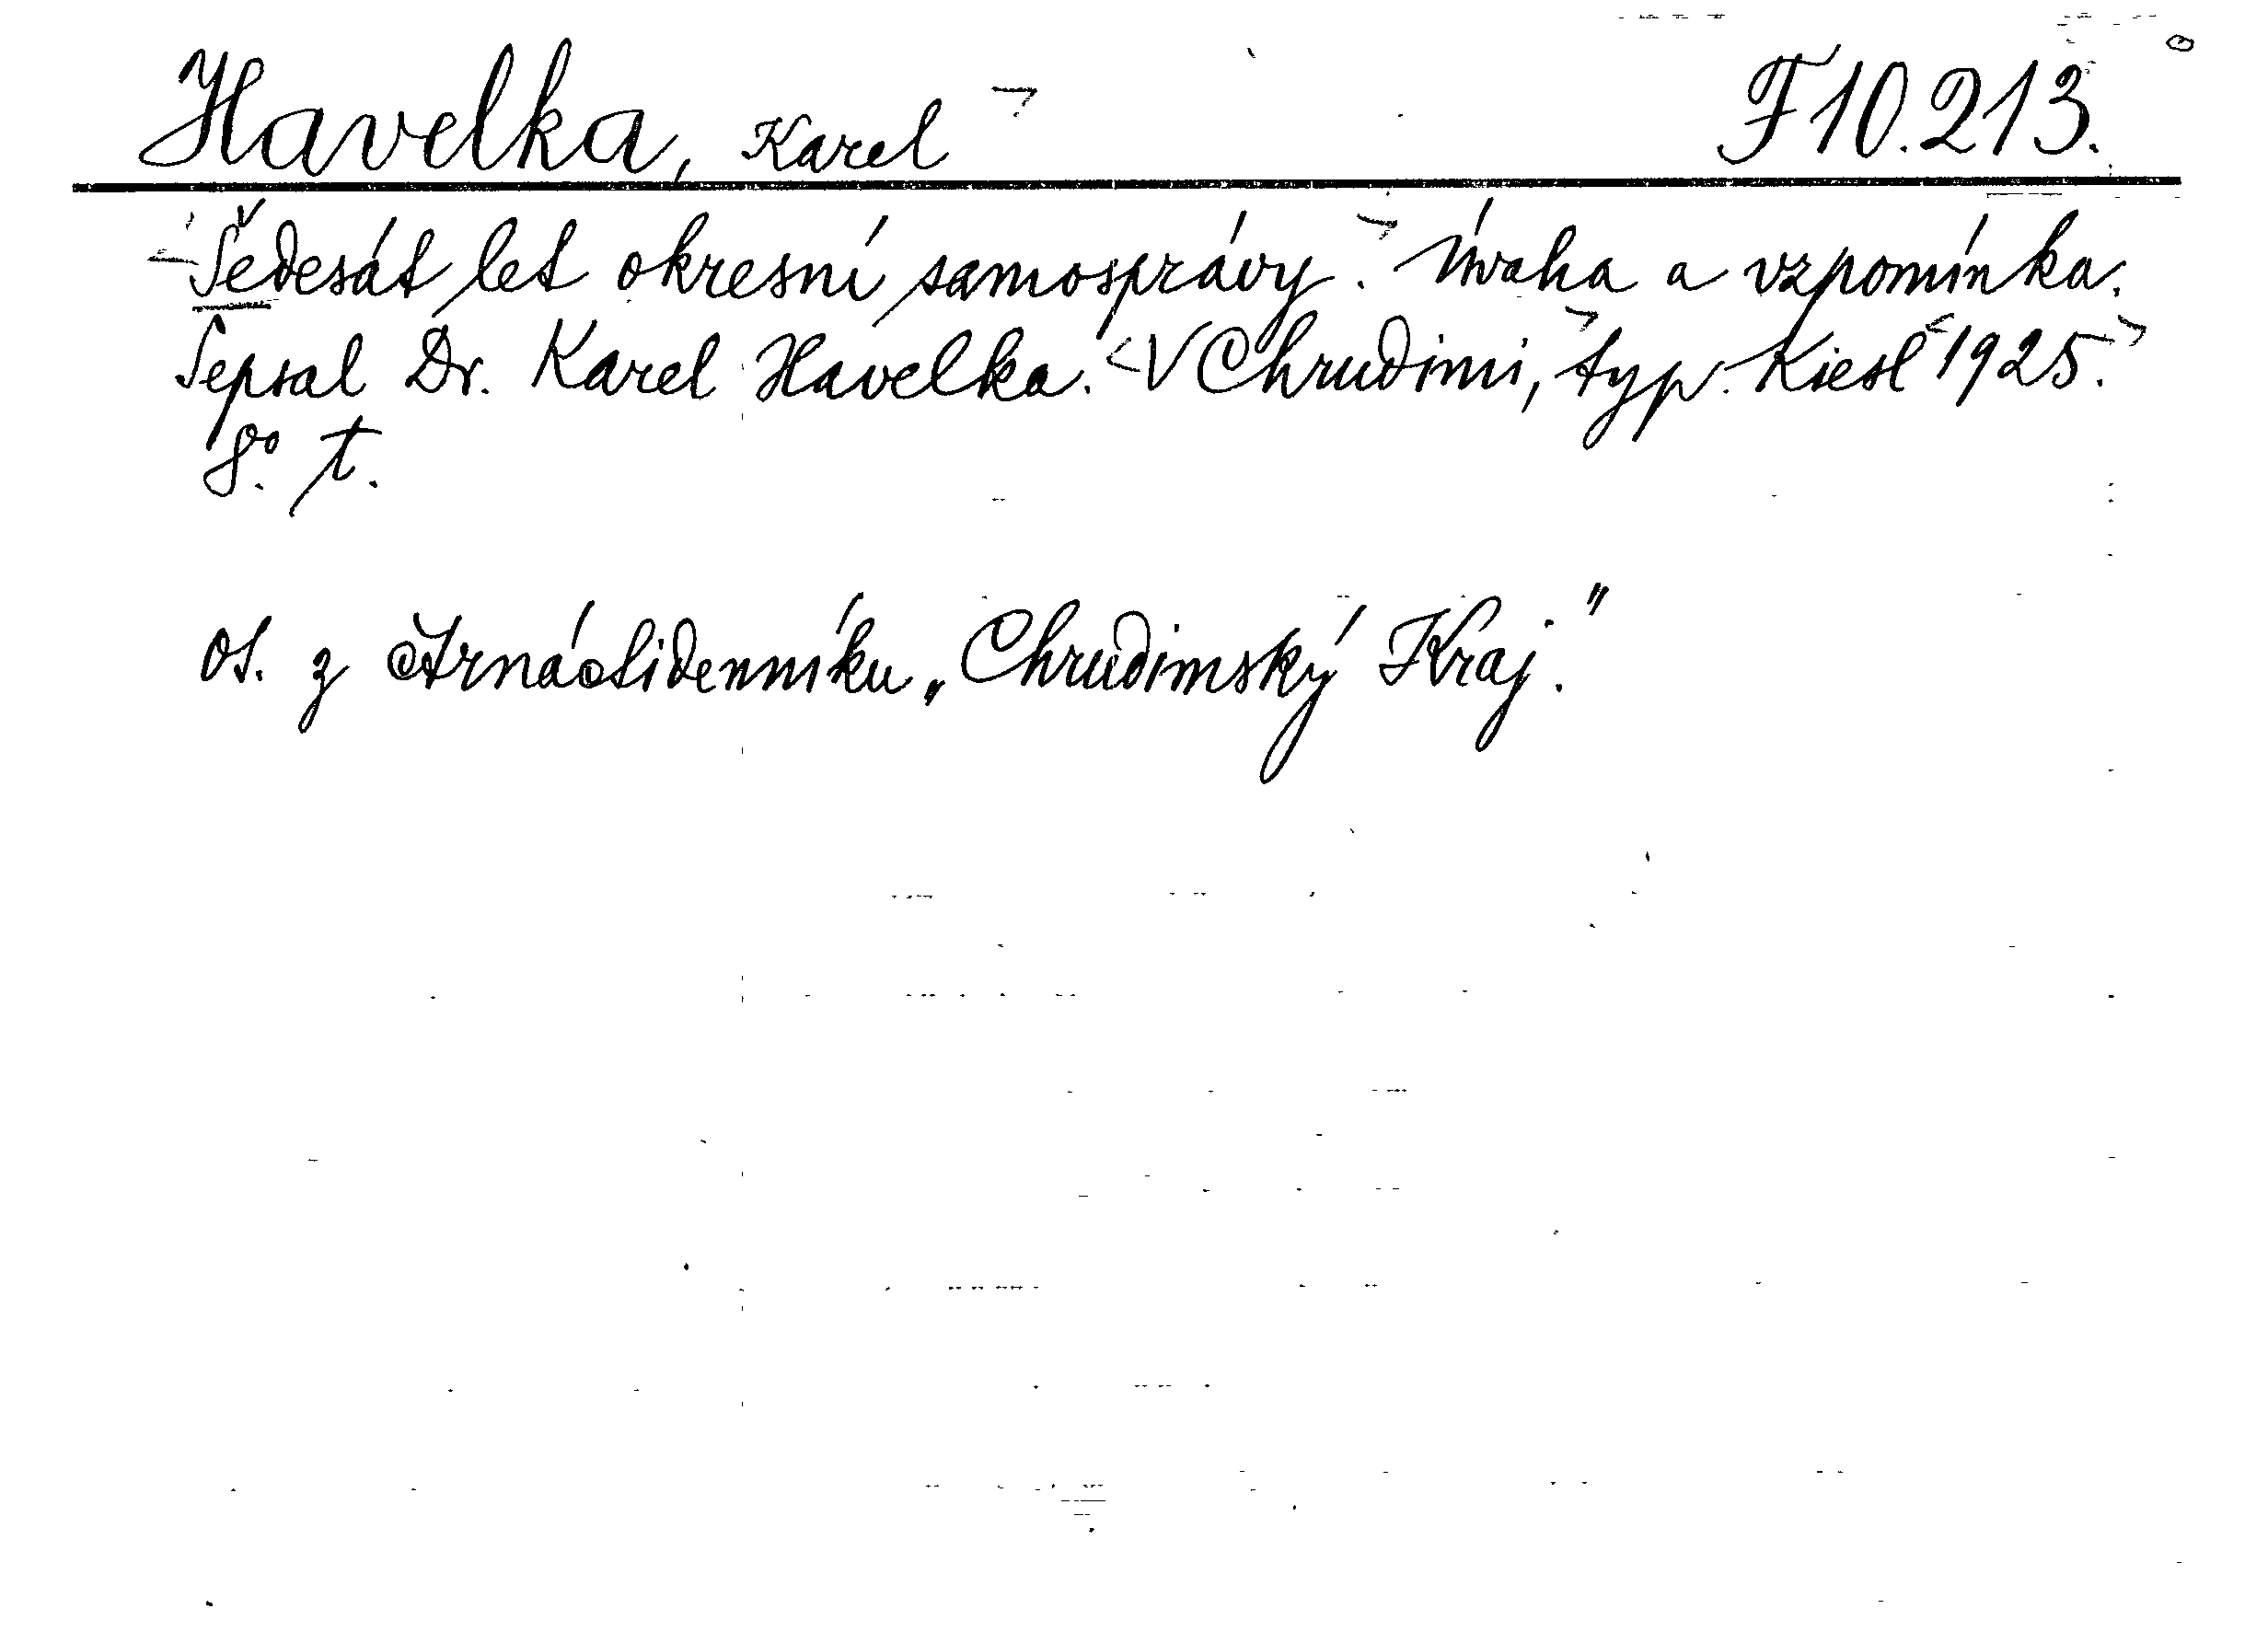 Havelka, Karel F10.213.
Šedesát let okresní samosprávy. Úvaha a vzpomínka.
Sepsal Dr. Karel Havelka. V Chrudimi, typ. Kiesl 1925.
8°. t.
os. z čtrnáctidenníku „Chrudimský Kraj."